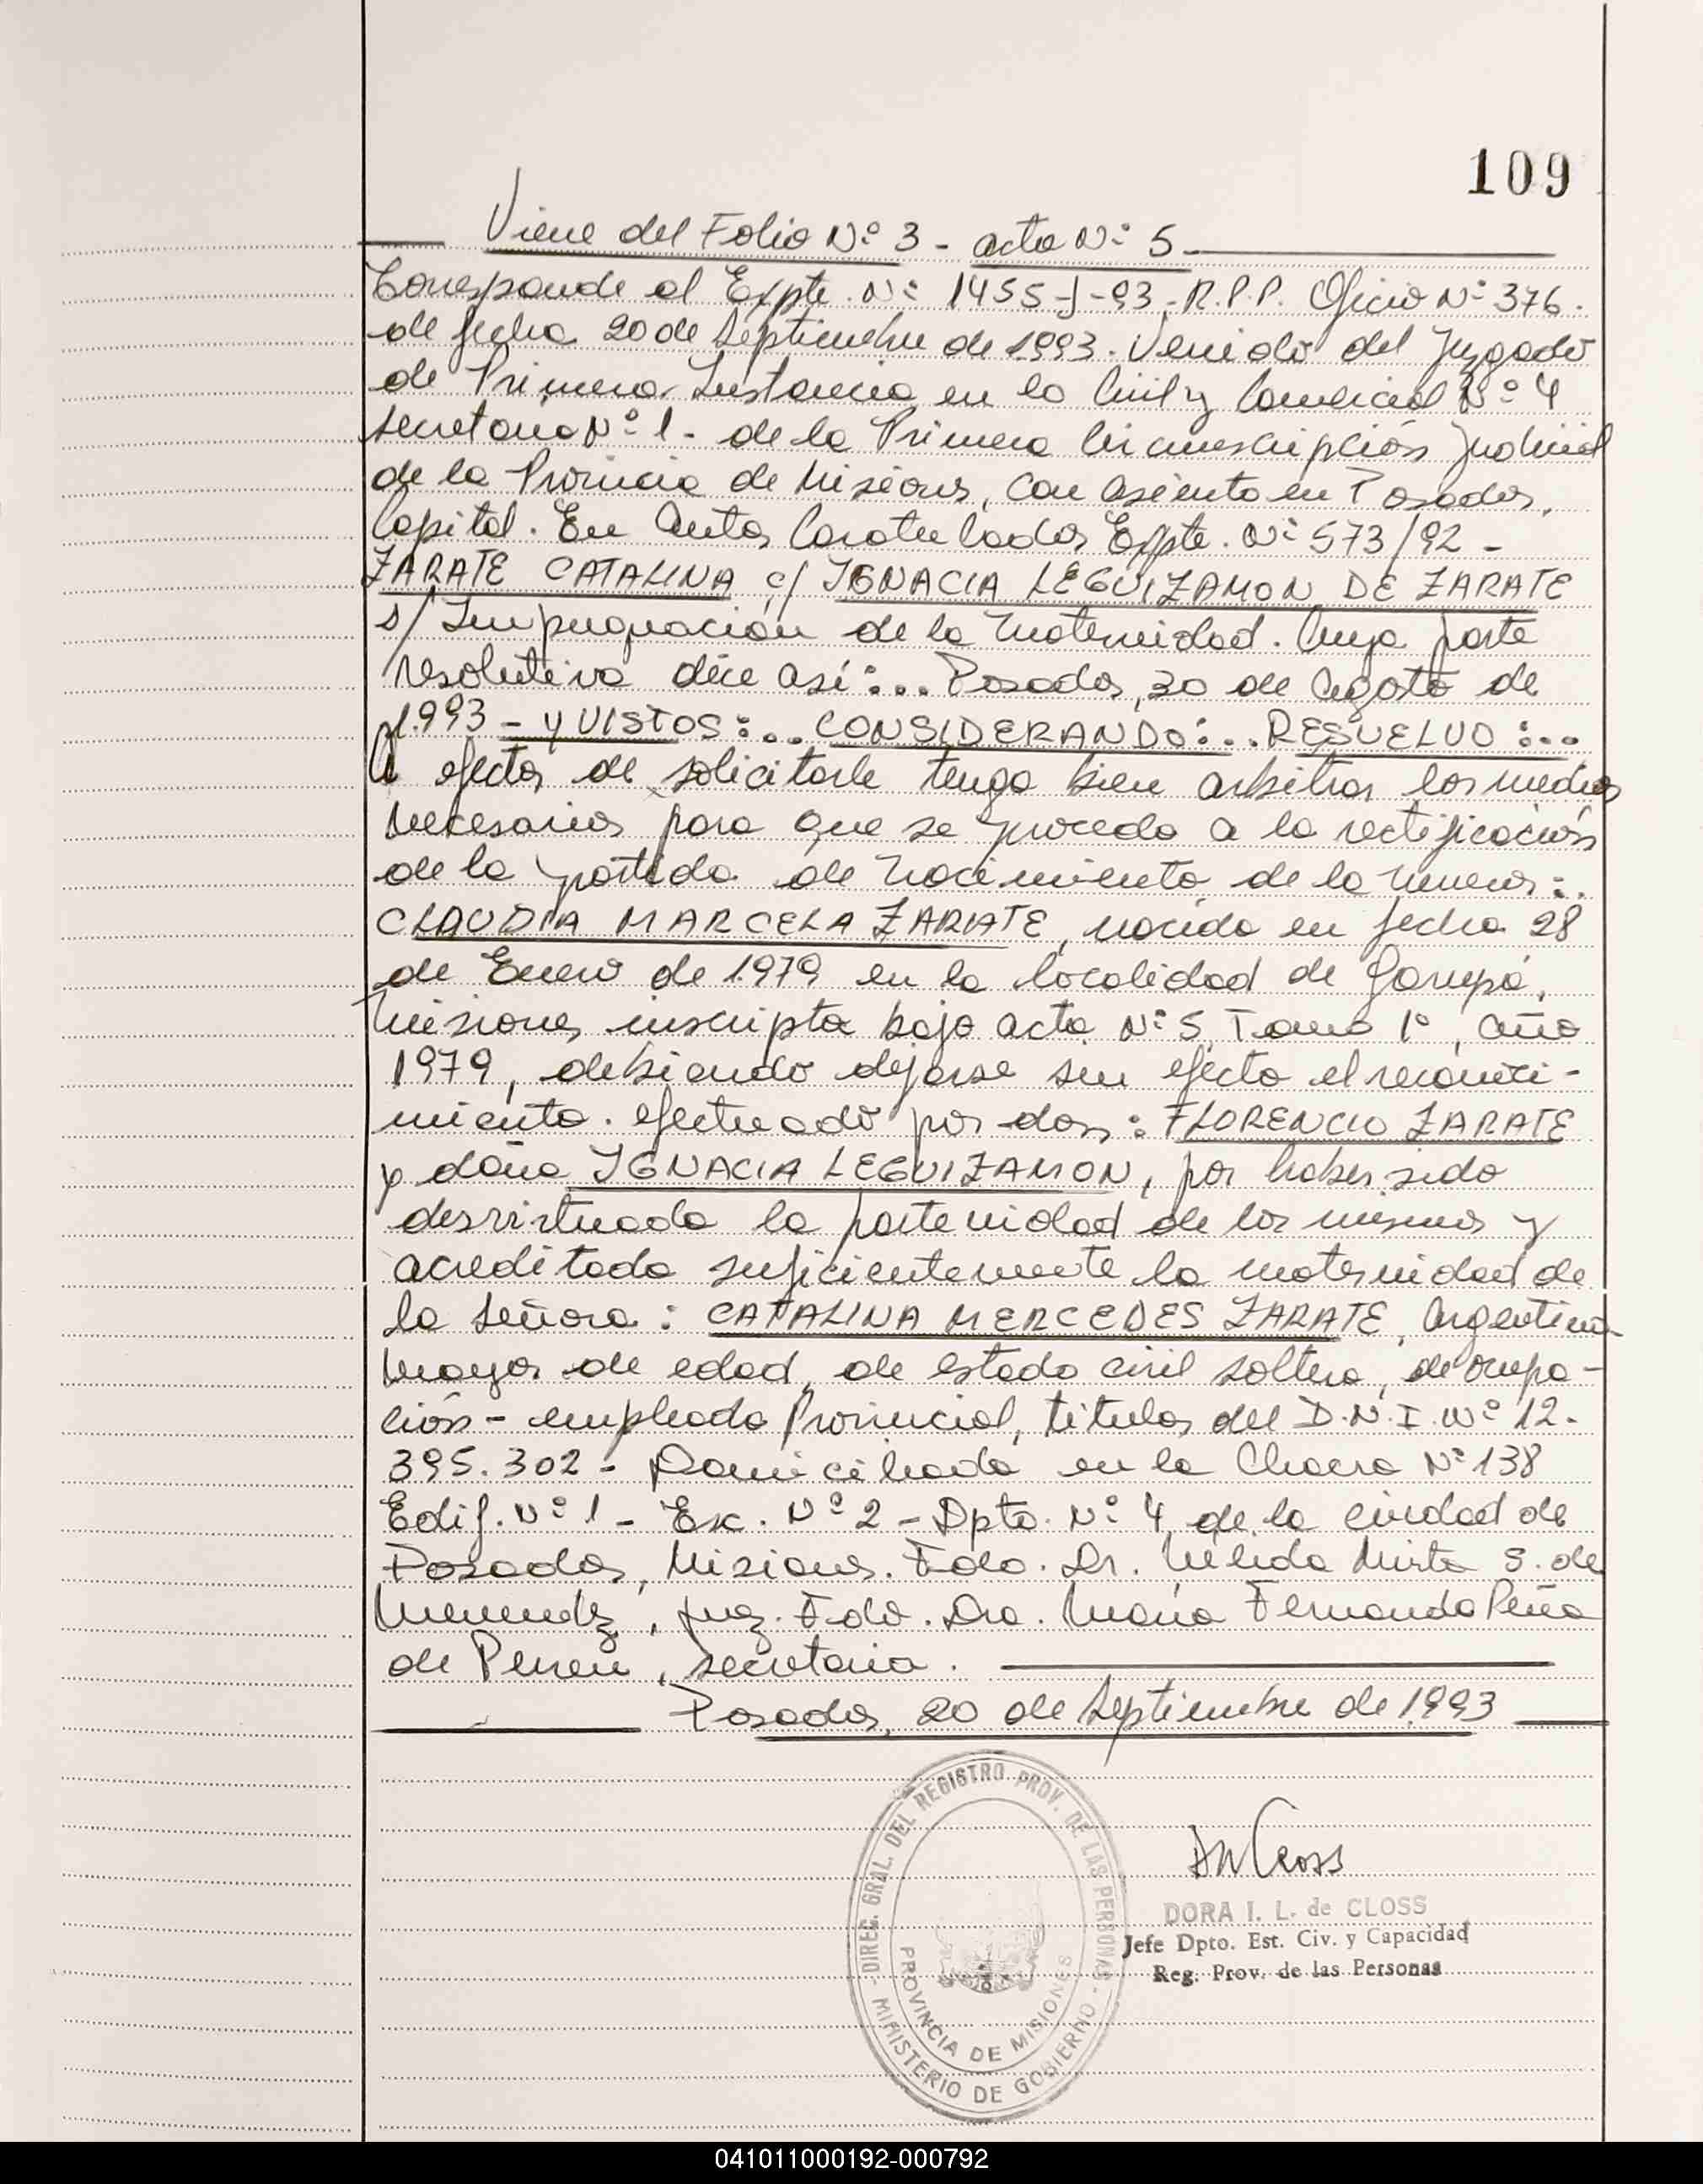 109
Viene del Folio Nº 3 - acta Nº 5
Corresponde al Expte. Nº 1455-J-93-R.P.P. Oficio Nº 376.
de fecha 20 de Septiembre de 1993. Venido del Juzgado
de Primera Instancia en lo Civil y Comercial Nº 4
secretaria Nº 1 - de la Primera Circunscripción Judicial
de la Provincia de Misiones, con asiento en Posadas,
Capital. En Autos Caratulados Expte. Nº 573/92 -
ZARATE CATALINA c/ IGNACIA LEGUIZAMON DE ZARATE
s/ Impugnación de la Maternidad. Cuya parte
resolutiva dice así:... Posadas, 30 de Agosto de
1.993 - y VISTOS:... CONSIDERANDO:.. RESUELVO:...
A efectos de solicitarle tenga bien arbitrar los medios
necesarios para que se proceda a la rectificación
de la partida de nacimiento de la menor:..
CLAUDIA MARCELA ZARATE, nacida en fecha 28
de Enero de 1979 en la localidad de Garupá,
Misiones, inscripta bajo acta Nº 5, Tomo 1º, año
1979, debiendo dejarse sin efecto el reconoci-
miento efectuado por don: FLORENCIO ZARATE
y doña IGNACIA LEGUIZAMON, por haber sido
desvirtuada la paternidad de los mismos y
acreditada suficientemente la maternidad de
la señora: CATALINA MERCEDES ZARATE, Argentina
mayor de edad, de estado civil soltera, de ocupa-
ción - empleada Provincial, titular del D.N.I. Nº 12.
395.302 - Domiciliada en la Chacra Nº 138
Edif. Nº 1 - Esc. Nº 2 - Dpto. Nº 4 de la ciudad de
Posadas, Misiones. Fdo. Dr. Nélida Mirta S. de
Menendez, juez. Fdo. Dra. María Fernanda Peña
de , secretaria.
Posadas, 20 de Septiembre de 1.993
DIREC. GRAL. DEL REGISTRO PROV. DE LAS PERSONAS - MINISTERIO DE GOBIERNO -
PROVINCIA DE MISIONES
DORA I. L. de CLOSS
Jefe Dpto. Est. Civ. y Capacidad
Reg. Prov. de las Personas
041011000192-000792